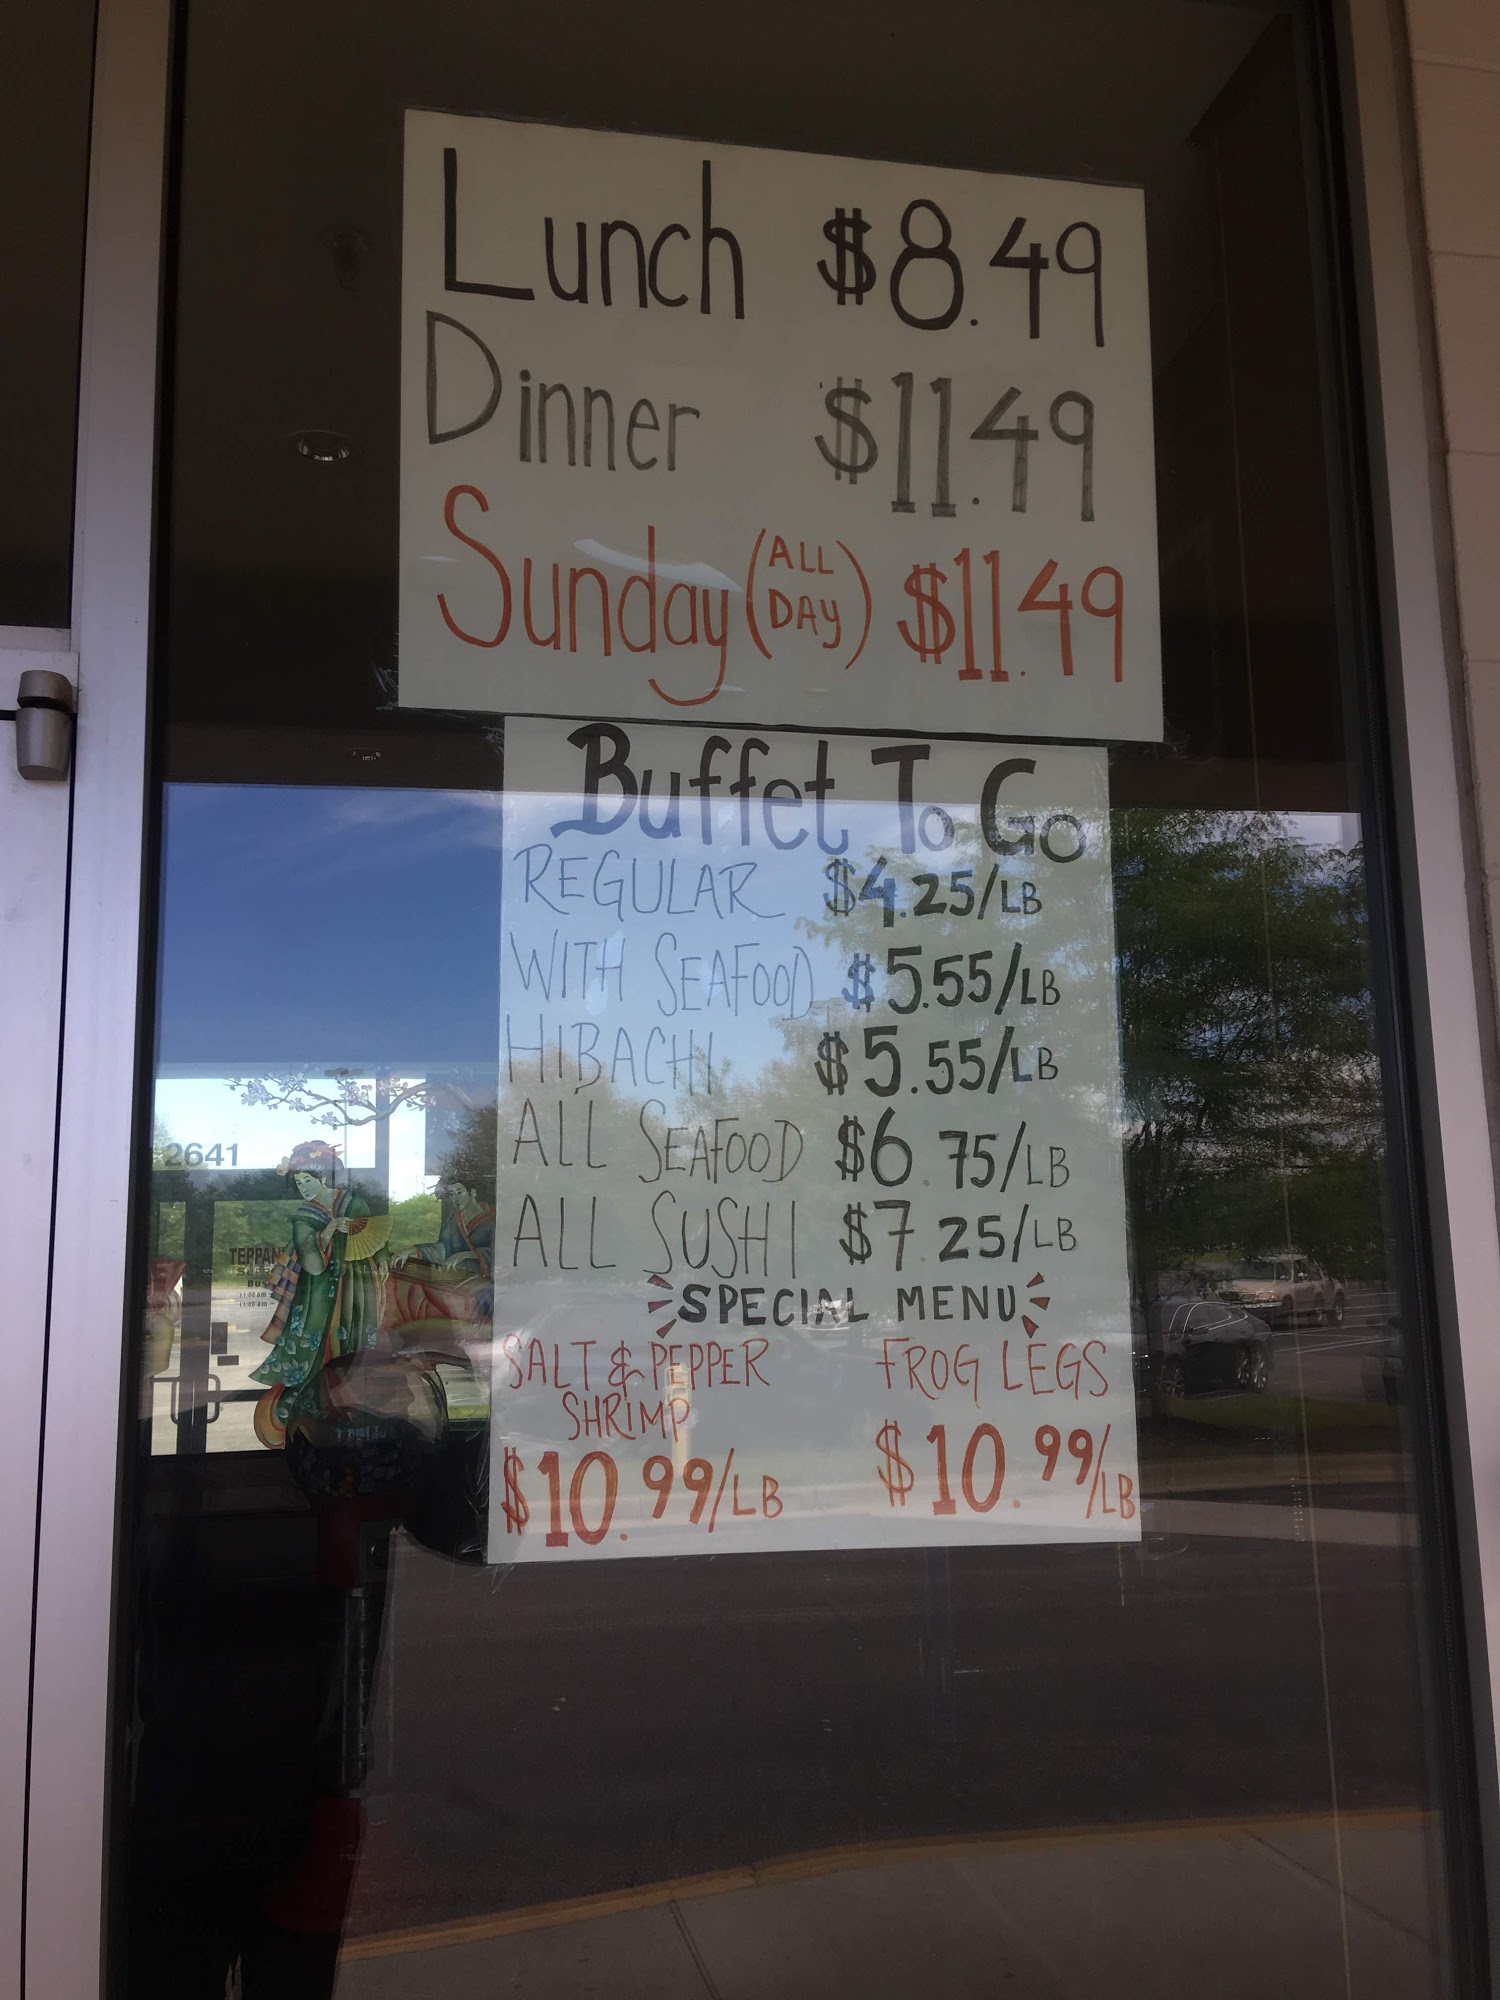 Lunch $8.49
Dinner $11.49
Sunday (ALL DAY) $11.49
Buffet To Go
REGULAR $4.25/LB
WITH SEAFOOD $5.55/LB
HIBACHI $5.55/LB
ALL SEAFOOD $6.75/LB
ALL SUSHI $7.25/LB
SPECIAL MENU
SALT & PEPPER SHRIMP
$10.99/LB
FROG LEGS
$10.99/LB
2641